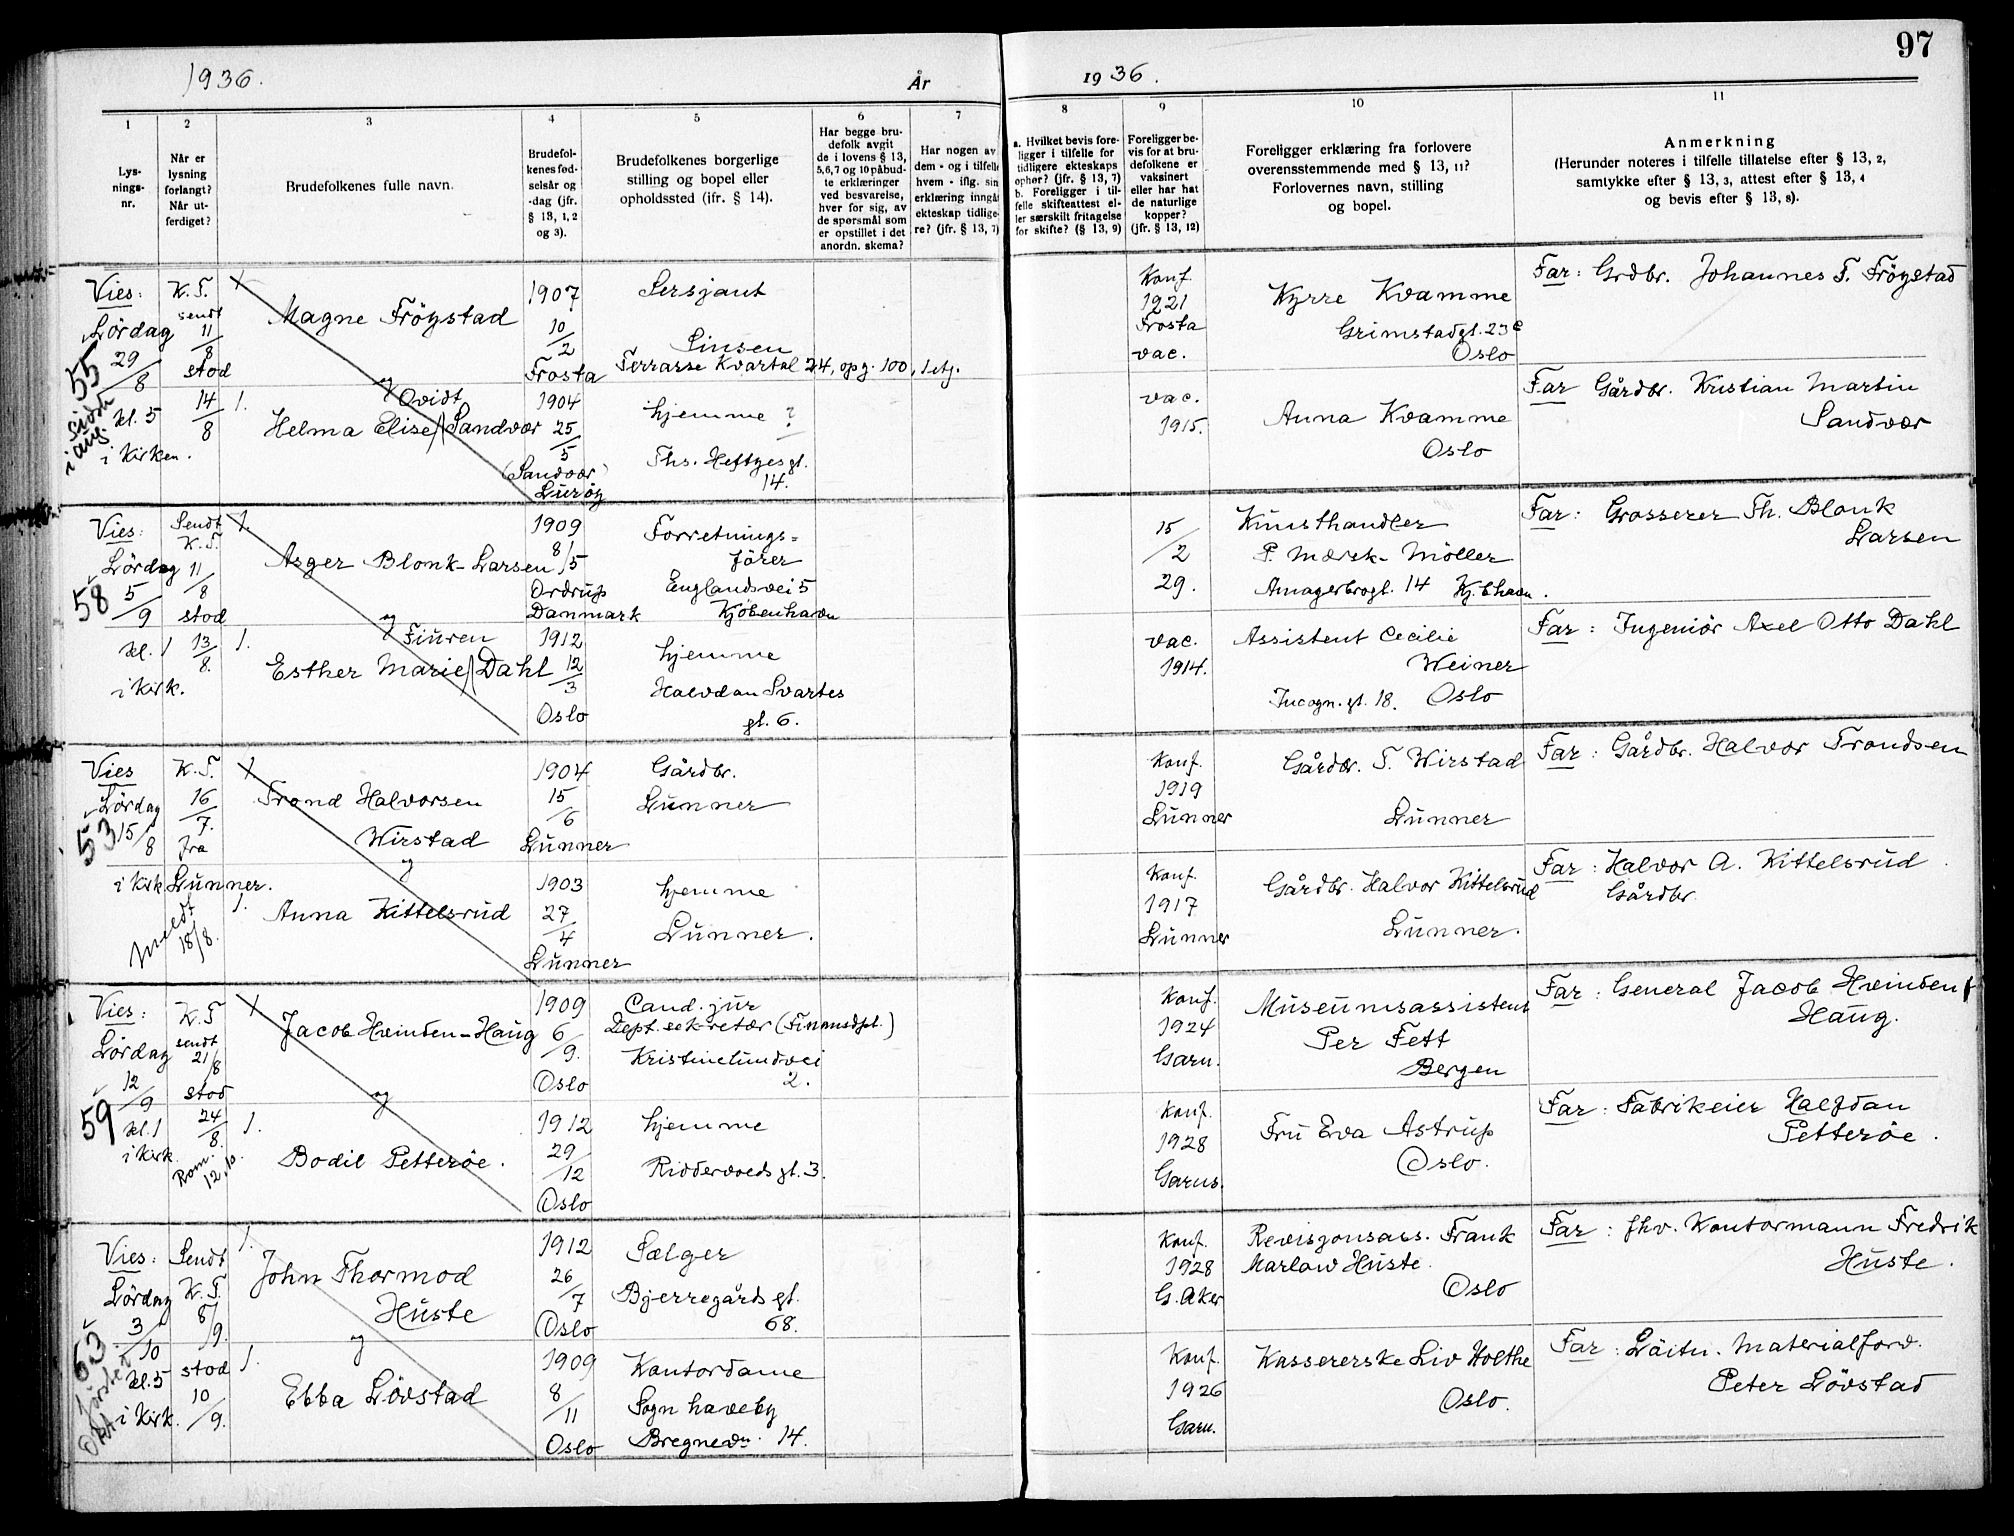 97
1936.
År
1936.
1
2
3
4
5
6
7
8
9
10
11
Lys-
nings-
nr.
Når er
lysning
forlangt?
Når ut-
ferdiget?
Brudefolkenes fulle navn.
Brudefol-
kenes fød-
selsår og
-dag (jfr.
§ 13, 1, 2
og 3).
Brudefolkenes borgerlige
stilling og bopel eller
opholdssted (jfr. § 14).
Har begge bru-
defolk avgit
de i lovens § 13,
5,6,7 og 10 påbud-
te erklæringer
ved besvarelse,
hver for sig, av
de spørsmål som
er opstillet i det
anordn. skema?
Har nogen av
dem - og i tilfelle
hvem - iflg. sin
erklæring inngå
ekteskap tidlige-
re? (jfr. § 13, 7)
a. Hvilket bevis fore-
ligger i tilfelle for
tidligere ekteskaps
ophør? (jfr. § 13, 7)
b. Foreligger i til-
felle skifteattest el-
ler særskilt fritagelse
for skifte? (§ 13, 9)
Foreligger be-
vis for at bru-
defolkene er
vaksinert
eller har hat
de naturlige
kopper?
(jfr. § 13, 12)
Foreligger erklæring fra forlovere
overensstemmende med § 13, 11?
Forlovernes navn, stilling
og bopel.
Anmerkning
(Herunder noteres i tilfelle tillatelse efter § 13, 2,
samtykke efter § 13, 3, attest efter § 13, 4
og bevis efter § 13, 8).
55
Vies:
Lördag
29/8
kl. 5
i Kirken.
K. T.
sendt
11/8
stod
14/8
1.
Magne Fröystad
og
Ovidt
Helma Elise Sandvær
1907
10/2
Frosta
1904
25/5
(Sandvær)
Luröy
Sersjant
Sinsen
Terrasse Kvartal 24, opg. 100, 1 etg.
hjemme ?
Ths. Heftyes gt.
14.
Konf.
1921
Frosta
vac.
vac.
1915.
Kyrre Kvamme
Grimstadgt. 23 c
Oslo
Anna Kvamme
Oslo
Far: Grdbr. Johannes T. Fröystad
Far Gårdbr. Kristian Martin
Sandvær
58
Vies:
Lördag
5/9
kl. 1
i Kirk.
Sendt
K. T.
11/8
stod
13/8.
1.
1.
Asger Blonk-Larsen
og
Finren
Esther Marie Dahl
1909
8/5
Ordrup
Danmark
1912
12/3
Oslo
Forretnings=
förer
Englandsvei 5
Kjöbenhavn
hjemme
Halvdan Svartes
gt. 6.
15/2
29.
vac.
1914.
Kunsthandler
P. Mærsk-Möller
Amagerbrogt. 14 Kj.bhavn.
Assistent Cecilie
Weiner
Incogn. gt. 18. Oslo
Far: Grosserer Th. Blonk
Larsen
Far: Ingeniör Axel Otto Dahl
53
Vies
Lördag
15/8
i Kirk
K. T.
16/7.
fra
Lunner.
meldt
18/8.
1.
Trond Halvorsen
Wirstad
og
Anna Kittelsrud
1904
15/6
Lunner
1903
27/4
Lunner
Gårdbr.
Lunner
hjemme
Lunner.
Konf.
1919
Lunner
Konf.
1917
Lunner
Gårdbr. T. Wirstad
Lunner
Gårdbr. Halvor Kittelsrud
Lunner.
Far: Gårdbr. Halvor Trondsen
Far: Halvor A. Kittelsrud
Gårdbr.
59
Vies:
Lördag
12/9
kl. 1
i Kirk
K. T
sendt
21/8
stod
24/8.
1.
Jacob Hvinden-Haug
og
Bodil Petteröe.
1909
6/9.
Oslo
1912
29/12
Oslo
Cand. jur
Dept. sekretær (Finansdpt.)
Kristinelundvei
2.
hjemme
Riddervoldsgt. 3.
Konf.
1924
Garn.
Konf.
1928
Garns.
Museumsassistent
Per Fett
Bergen
Fru Eva Astrup
Oslo.
Far: General Jacob Hvinden
Haug.
Far: Fabrikeier Halfdan
Petteröe.
63
Vies:
Lördag
3/10
kl. 5
i Kirk.
Sendt
K. T.
8/9.
stod
10/9.
1.
1.
John Thormod
Huste
og
Ebba Lövstad
1912
26/7
Oslo
1909
8/11
Oslo
Sælger
Bjerregårds gt.
68.
Kontordame
Sogn haveby
Bregnevn. 14.
Konf.
1928
G. Aker
Konf.
1926
Garn.
Revisjonsass. Frank
Marlow Huste.
Oslo
Kassererske Liv Holthe
Oslo.
Far: fhv. Kontormann Fredrik
Huste.
Far: Löitn. Materialforv.
Peter Lövstad